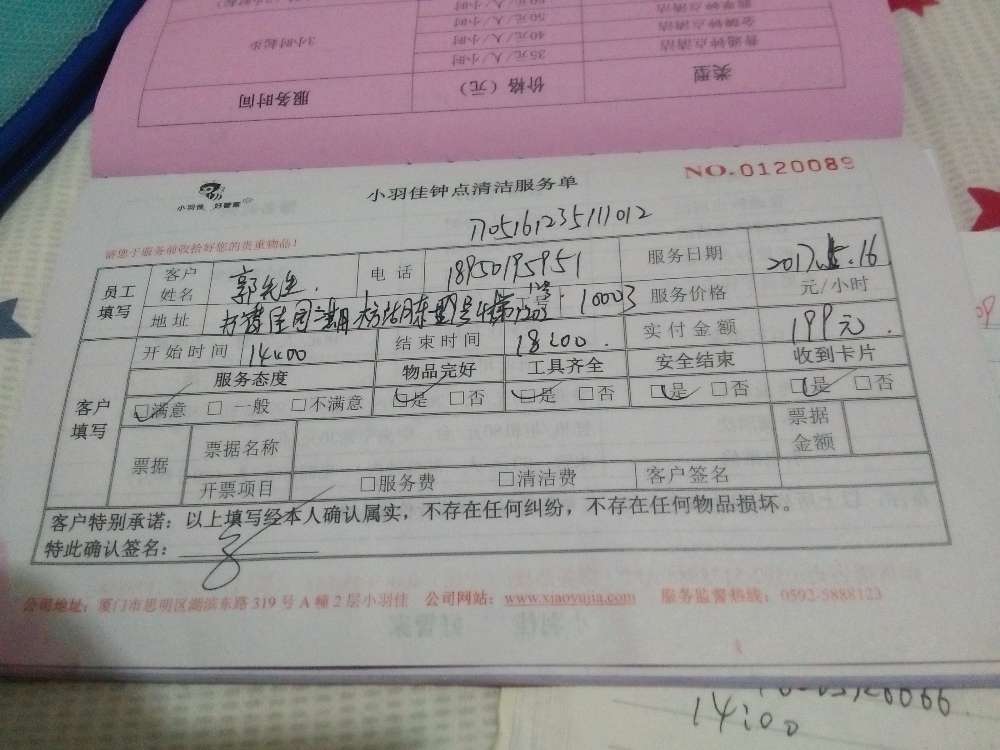 服务时间 价格（元） 类型
3小时起步 35元/人/小时 普通钟点清洁
40元/人/小时 金牌钟点清洁
50元/人/小时
小羽佳 好管家
小羽佳钟点清洁服务单
NO.0120089
1705161235111012
请您于服务前收拾好您的贵重物品！
员工填写 客户姓名 郭先生 电话 18950195951 服务日期 2017.5.16
地址 10003 服务价格 元/小时
开始时间 14:00 结束时间 18:00 实付金额 199元
客户填写 服务态度 物品完好 工具齐全 安全结束 收到卡片
□满意 □一般 □不满意 □是 □否 □是 □否 □是 □否 □是 □否
票据 票据名称 票据金额
开票项目 □服务费 □清洁费 客户签名
客户特别承诺：以上填写经本人确认属实，不存在任何纠纷，不存在任何物品损坏。
特此确认签名：
公司地址：厦门市思明区湖滨东路319号A幢2层小羽佳 公司网站：www.xiaoyujia.com 服务监督热线：0592-5888123
14:00